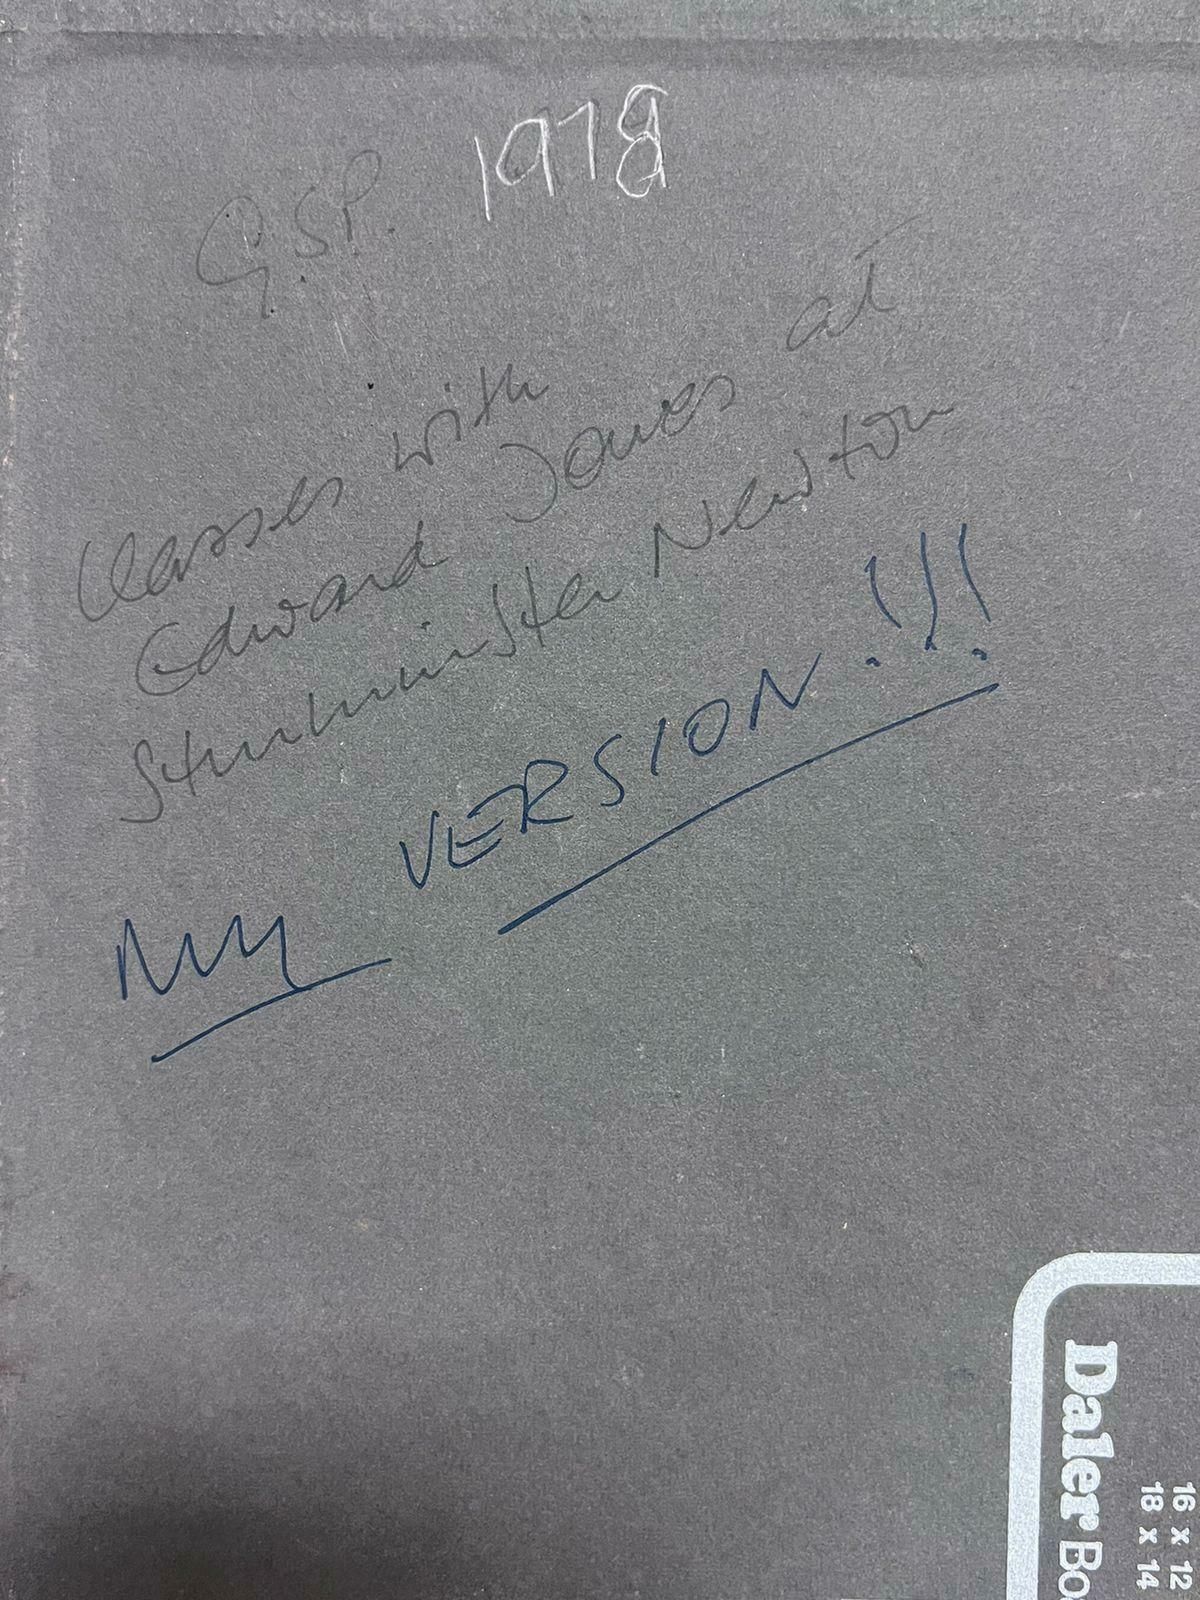 1978
G.S.P.
Classes with
Edward Jones at
Sturminster Newton
My VERSION!!!
Daler Bo
16 x 12
18 x 14